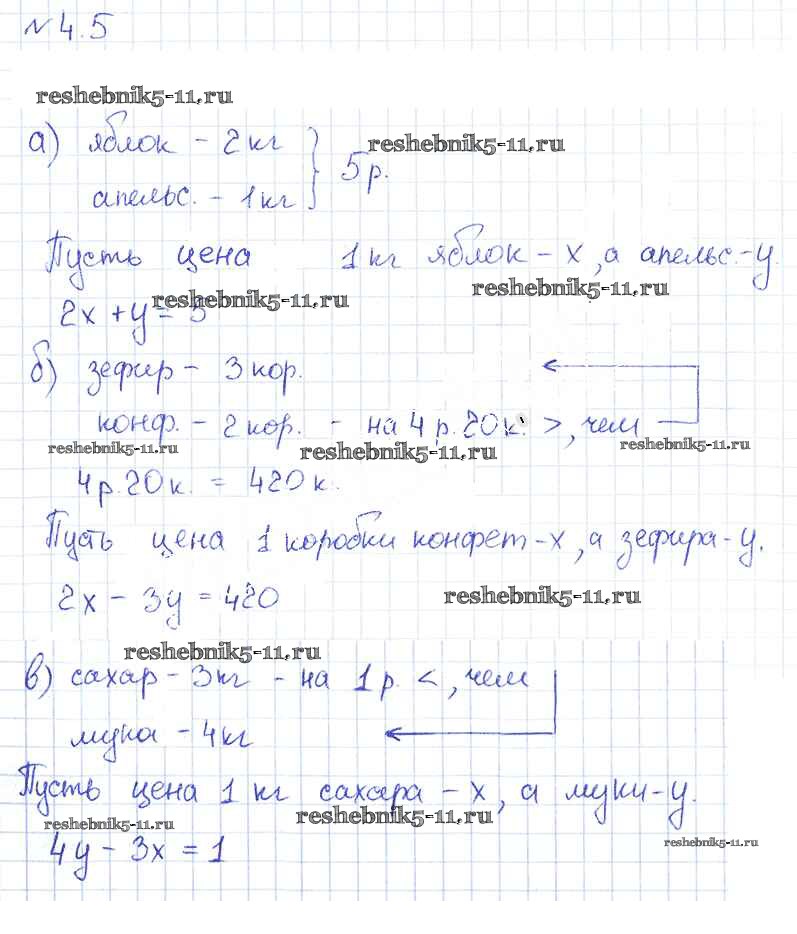 № 4.5
reshebnik5-11.ru
а) яблок - 2 кг
reshebnik5-11.ru
5 р.
апельс. - 1 кг
Пусть цена 1 кг яблок - x, а апельс. - y.
reshebnik5-11.ru
reshebnik5-11.ru
2x + y = 5
б) зефир - 3 кор.
конф. - 2 кор. - на 4 р. 20 к. >, чем
reshebnik5-11.ru
reshebnik5-11.ru
reshebnik5-11.ru
4 р. 20 к. = 420 к.
Пусть цена 1 коробки конфет - x, а зефира - y.
2x - 3y = 420
reshebnik5-11.ru
reshebnik5-11.ru
в) сахар - 3 кг - на 1 р. <, чем
мука - 4 кг
Пусть цена 1 кг сахара - x, а муки - y.
reshebnik5-11.ru
reshebnik5-11.ru
reshebnik5-11.ru
4y - 3x = 1